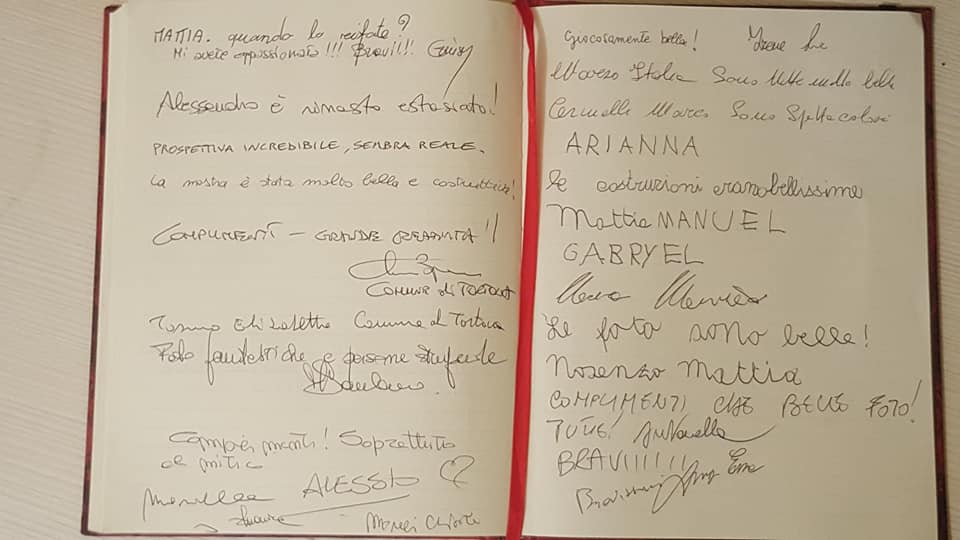 MATTIA. quando lo rifate?
Mi avete appassionato!!! Bravi!!! Giusy
Alessandro è rimasto estasiato!
PROSPETTIVA INCREDIBILE, SEMBRA REALE.
La mostra è stata molto bella e costruttiva!
COMPLIMENTI – GRANDE CREATIVITÀ!!
COMUNE di TORTONA
Elisabetta Comune di Tortona
Foto fantastiche e persone stupende
Complimenti! Soprattutto
al mitico
ALESSIO
Giocosamente bella!
Marco Italia Sono tutte molto belle
Marco Sono Spettacolari
ARIANNA
le costruzioni erano bellissime
Mattia MANUEL
GABRYEL
Le foto sono belle!
Nosenzo Mattia
COMPLIMENTI CHE BELLE FOTO!
TUTTE! Antonella
BRAVI!!!!!!